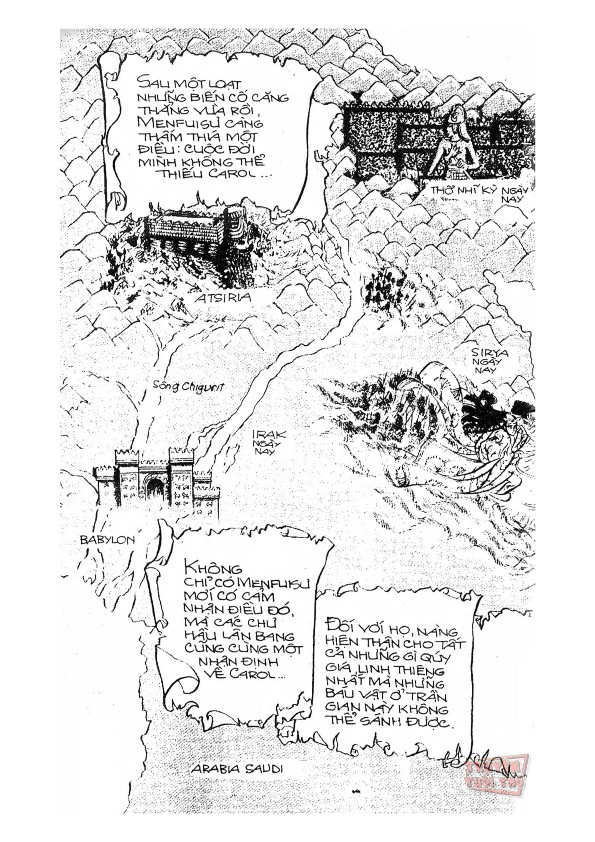 SAU MỘT LOẠT
NHỮNG BIẾN CỐ CĂNG
THẲNG VỪA RỒI,
MENFUISƯ CÀNG
THẤM THÍA MỘT
ĐIỀU: CUỘC ĐỜI
MÌNH KHÔNG THỂ
THIẾU CAROL...
THỔ NHĨ KỲ NGÀY
NAY
ATSIRIA
SIRYA
NGÀY
NAY
Sông Chigurit
IRAK
NGÀY
NAY
BABYLON
KHÔNG
CHỈ CÓ MENFUISƯ
MỚI CÓ CẢM
NHẬN ĐIỀU ĐÓ,
MÀ CÁC CHƯ
HẦU LÂN BANG
CŨNG CÙNG MỘT
NHẬN ĐỊNH
VỀ CAROL...
ĐỐI VỚI HỌ, NÀNG
HIỆN THÂN CHO TẤT
CẢ NHỮNG GÌ QÚY
GIÁ, LINH THIÊNG
NHẤT MÀ NHỮNG
BÁU VẬT Ở TRẦN
GIAN NÀY KHÔNG
THỂ SÁNH ĐƯỢC.
ARABIA SAUDI